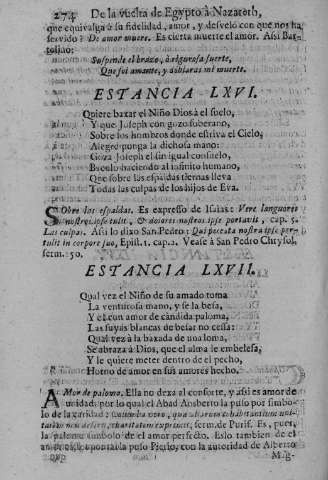 274 De la vuelta de Egypto à Nazareth,
que equivalga à la fidelidad, amor, y desvelo con que nos ha
servido? De amor muere. Es cierta muerte el amor. Assi
Suspende el brazo, à rigurosa suerte,
Que soi amante, y
ESTANCIA LXVI.
Quiere baxar el Niño Dios à el suelo,
Y que Joseph con gozo soberano,
Sobre los hombros donde estriva el Cielo,
Alegre ponga la dichosa mano:
Goza Joseph el sin igual consuelo,
Baculo haciendo al infinito humano,
Que sobre las espaldas tiernas lleva
Todas las culpas de los hijos de Eva.
SObre las espaldas. Es expresso de Isaias: Vere languores
nostros ipse tulit, & dolores nostros ipse portavit, cap. 5.
Las culpas. Assi lo dixo San Pedro: Qui peccata nostra ipse per-
tulit in corpore suo, Epist. 1. cap. 2. Vease à San Pedro Chrysol.
serm. 50.
ESTANCIA LXVII.
Qual vez el Niño de su amado toma
La venturosa mano, y se la besa,
Y el con amor de candida paloma,
Las suyas blancas de besar no cessa:
Qual vez à la baxada de una loma,
Se abraza à Dios, que el alma le embelesa,
Y le quiere meter dentro de el pecho,
Horno de amor en sus amores hecho.
AMor de paloma. Ella no dexa al consorte, y assi es amor de
unidad: por lo qual el Abad Ansberto la puso por simbo-
lo de la caridad:
serm. de Purif. Es, pues,
la paloma simbolo de el amor perfecto. Esto tambien de el
puso Pierio, con la autoridad de Alberto
Mag-